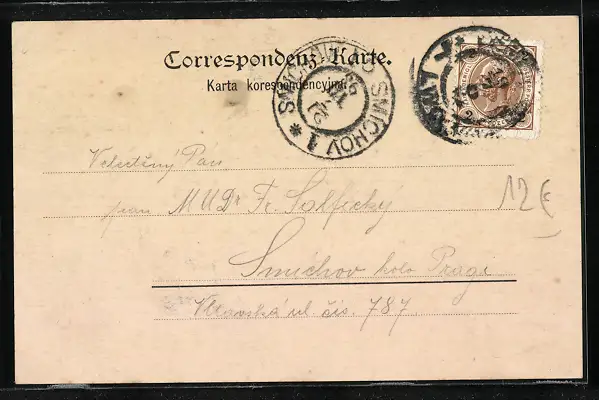 Correspondenz-Karte.
Karta korespondencyjna.
SMÍCHOV SMICHOW 1
Veletěný Pan
pan MUDr Fr. Salficky
Smíchov kolo Pragi
Vltavská ul čis. 787.
12€